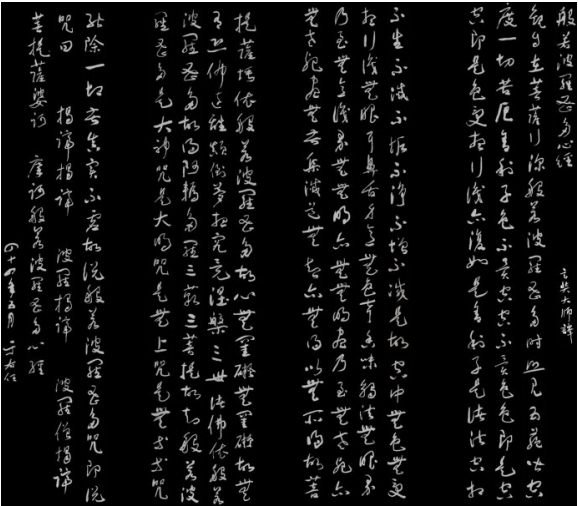 般若波羅蜜多心經 玄奘大師譯
觀自在菩薩行深般若波羅蜜多時照見五蘊皆空
度一切苦厄舍利子色不異空空不異色色即是空
空即是色受想行識亦復如是舍利子是諸法空相
不生不滅不垢不淨不增不減是故空中無色無受
想行識無眼耳鼻舌身意無色聲香味觸法無眼界
乃至無意識界無無明亦無無明盡乃至無老死亦
無老死盡無苦集滅道無智亦無得以無所得故菩
提薩埵依般若波羅蜜多故心無罣礙無罣礙故無
有恐怖遠離顛倒夢想究竟涅槃三世諸佛依般若
波羅蜜多故得阿耨多羅三藐三菩提故知般若波
羅蜜多是大神咒是大明咒是無上咒是無等等咒
能除一切苦真實不虛故說般若波羅蜜多咒即說
咒曰 揭諦揭諦 波羅揭諦 波羅僧揭諦
菩提薩婆訶 摩訶般若波羅蜜多心經
四十四年五月 于右任